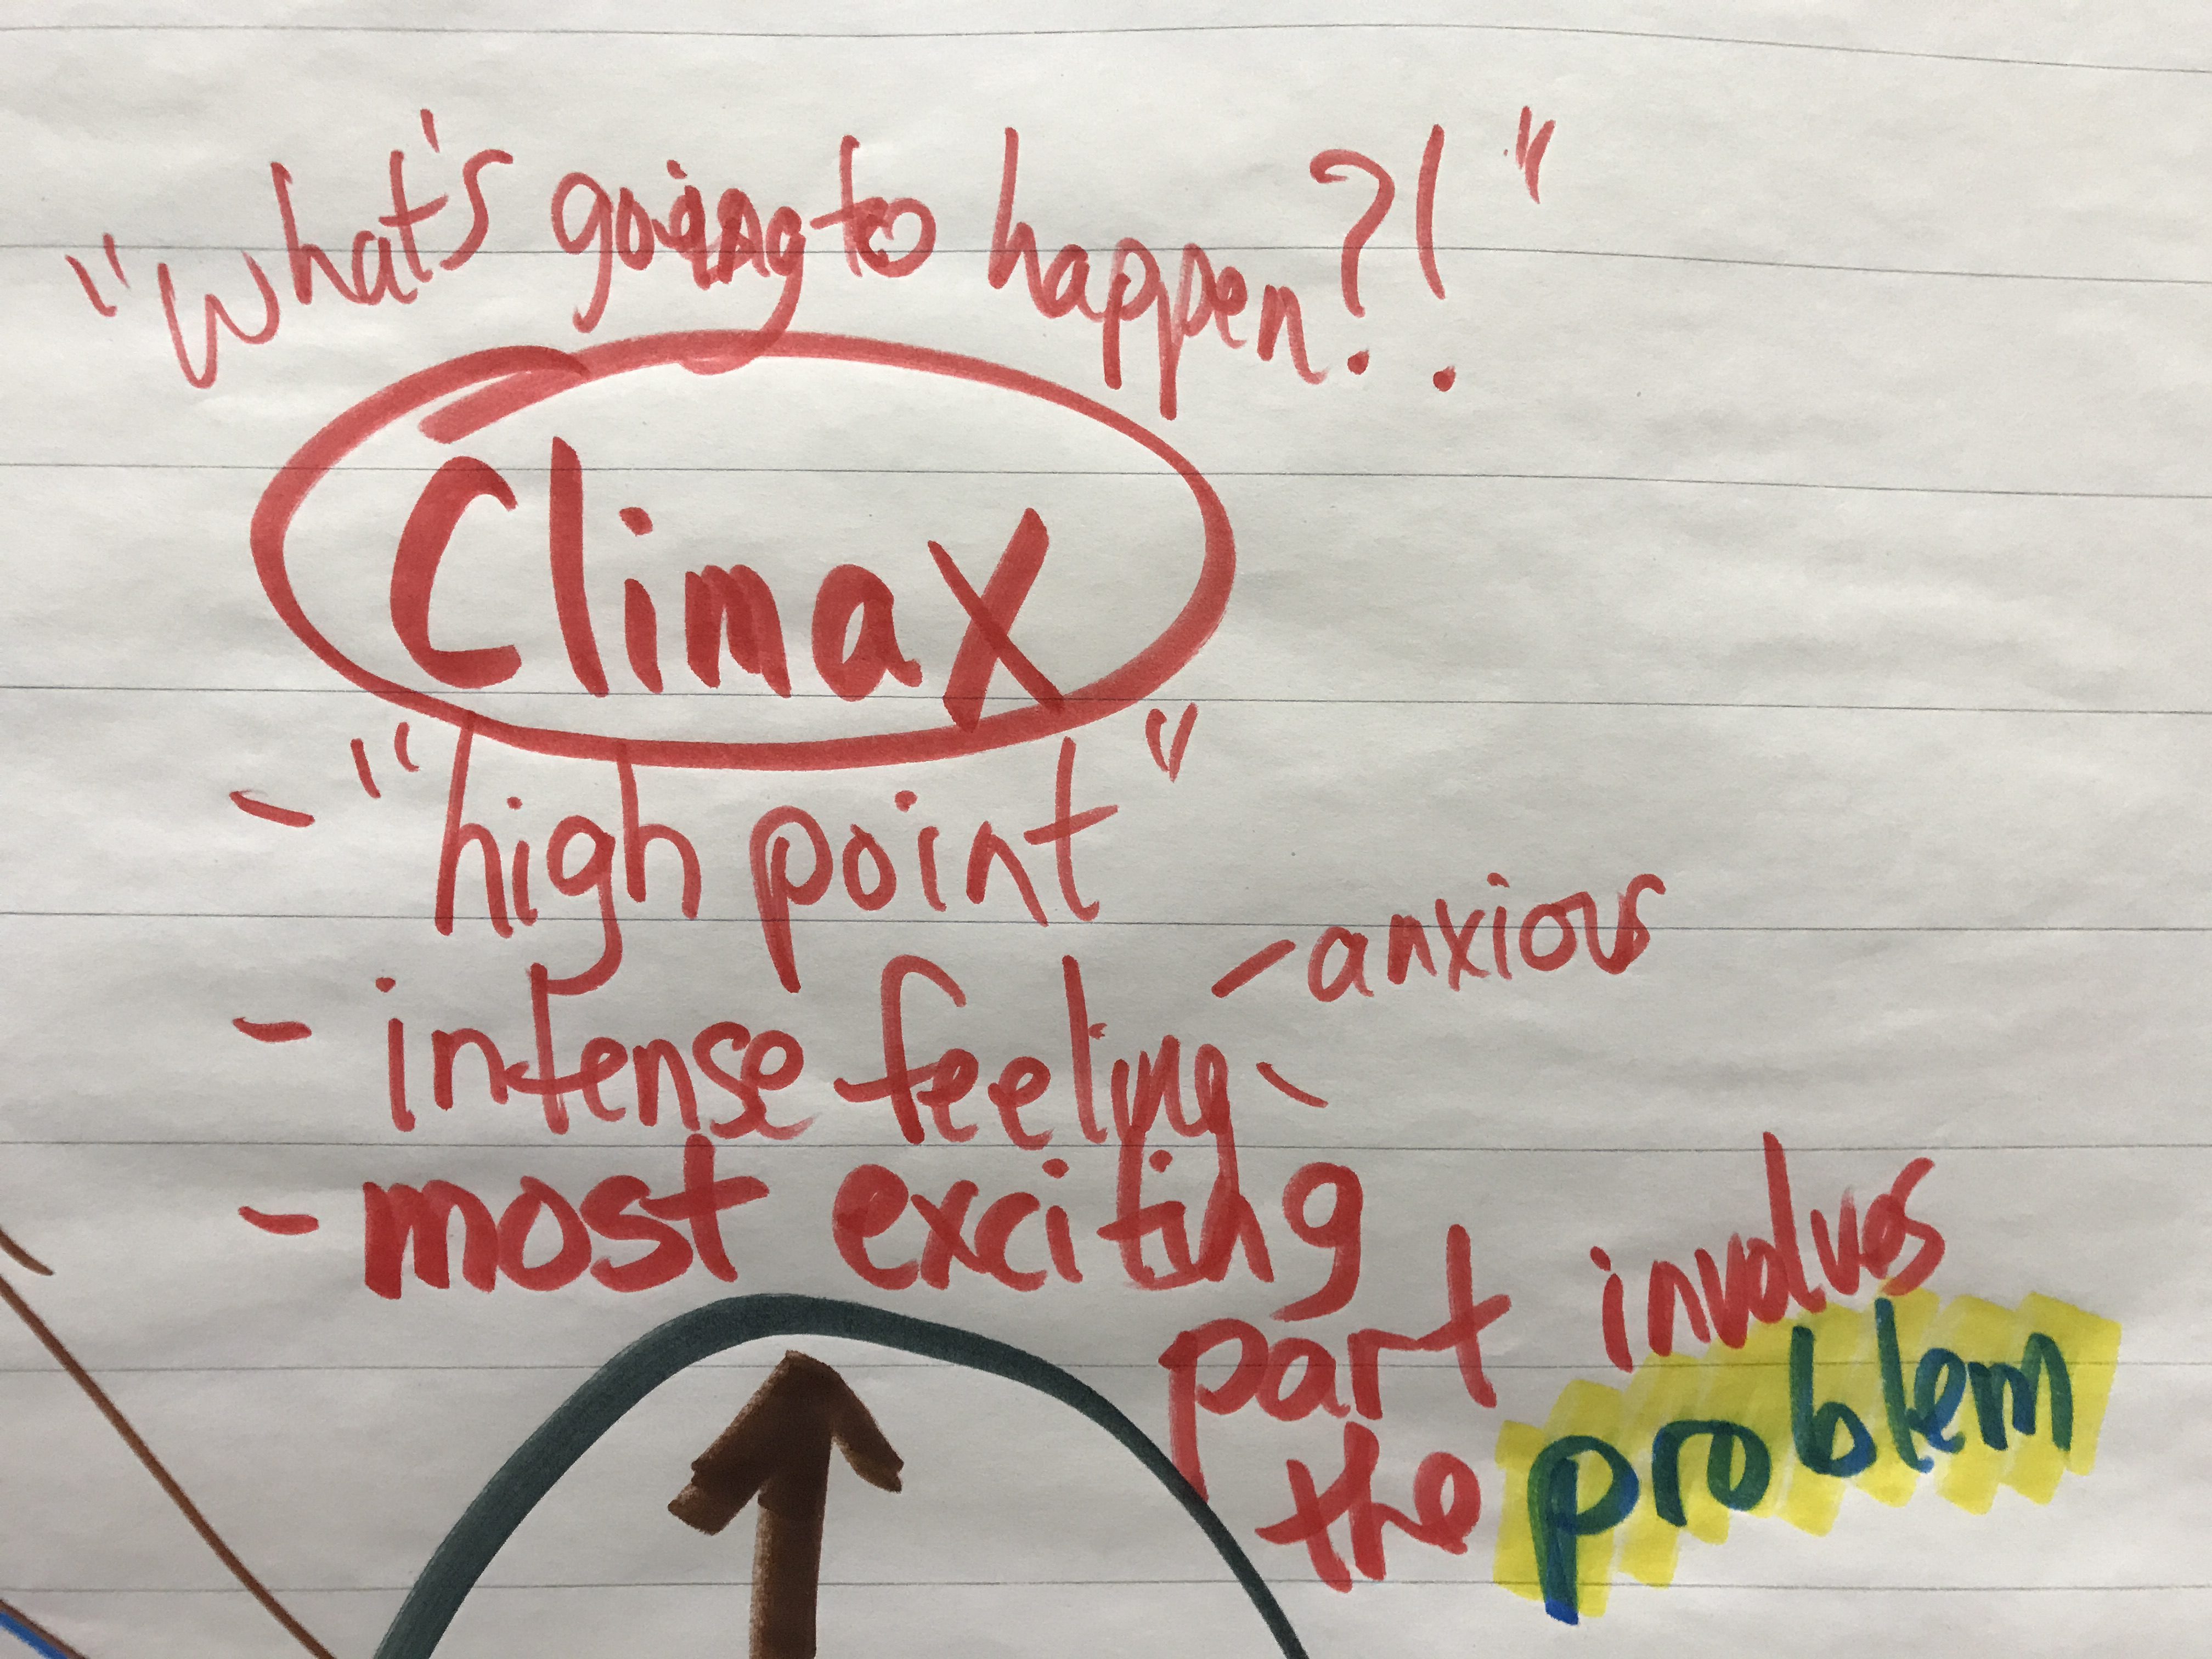 "What's going to happen?!"
Climax
- "high point"
- intense feeling - anxious
- most exciting
part involves
the problem